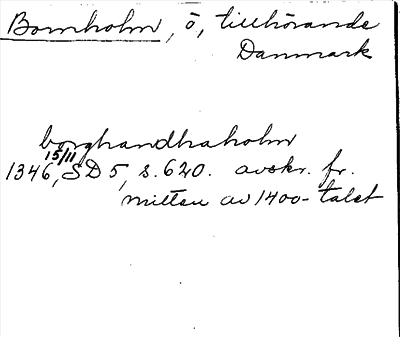 Bornholm, ö, tillhörande
Danmark
borghandhaholm
15/11
1346, SD 5, s. 620. avskr. fr.
mitten av 1400-talet